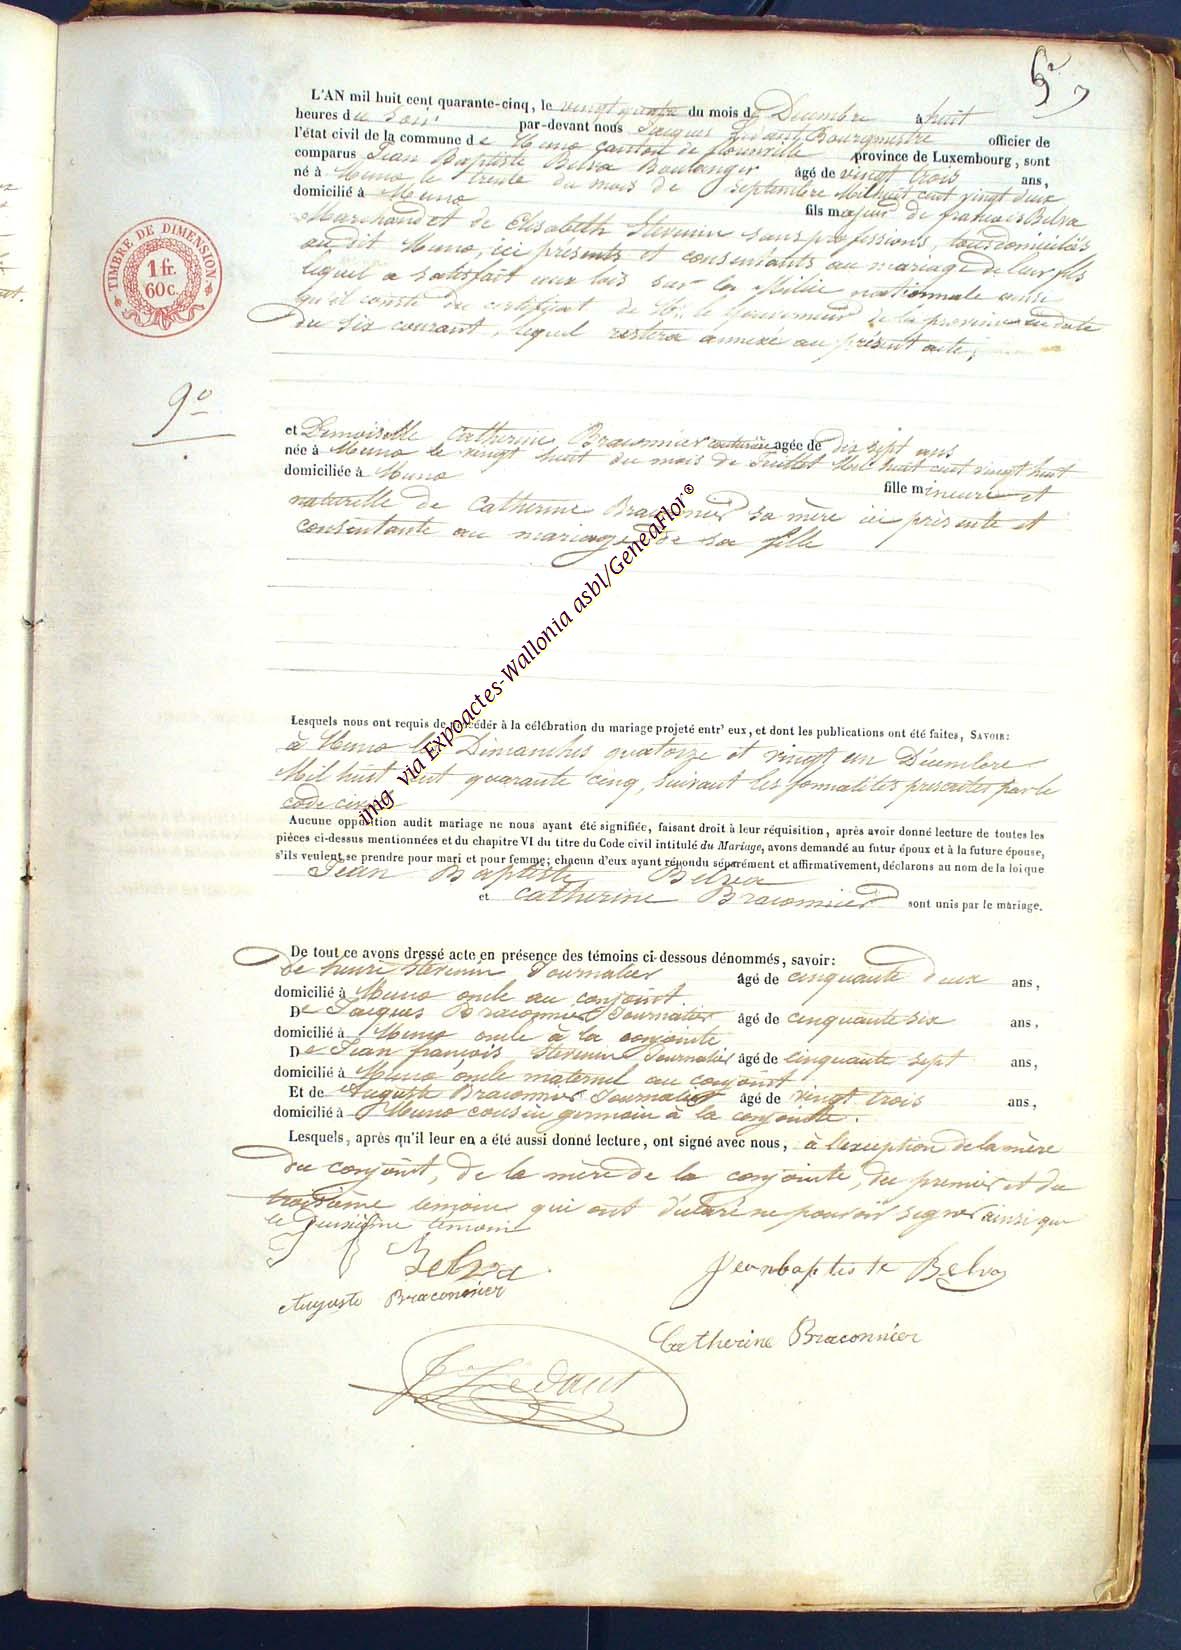 L'AN mil huit cent quarante-cinq, le vingt quatre du mois de Décembre à huit
heures du soir par-devant nous Jacques Bourgmestre officier de
l'état civil de la commune de Muno Canton de florenville province de Luxembourg, sont
comparus Jean Baptiste Belva Boulanger âgé de vingt trois ans,
né à Muno le trente du mois de septembre Mil huit cent vingt deux
domicilié à Muno fils majeur de francois Belva
Marchand et de Elisabeth Stevenin sans professions, tous domiciliés
au dit Muno, ici présents et consentants au mariage de leur fils
lequel a satisfait aux lois sur la Milice nationnale ainsi
qu'il conste du certificat de Mr. le Gouverneur de la province en date
du six courant, lequel restera annexé au présent acte;
TIMBRE DE DIMENSION
1 fr.
60 c.
9º
et Demoiselle Catherine Braconnier couturière agée de dix sept ans
née à Muno le vingt huit du mois de Juillet Mil huit cent vingt huit
domiciliée à Muno fille mineure et
naturelle de Catherine Braconnier sa mère ici présente et
consentante au mariage de sa fille
img via Expoactes-Wallonia asbl/GeneaFlor®
Lesquels nous ont requis de procéder à la célébration du mariage projeté entr' eux, et dont les publications ont été faites, SAVOIR:
à Muno les Dimanches quatorze et vingt un Décembre
Mil huit cent quarante cinq, suivant les formalités prescrites par le
code civil
Aucune opposition audit mariage ne nous ayant été signifiée, faisant droit à leur réquisition, après avoir donné lecture de toutes les
pièces ci-dessus mentionnées et du chapitre VI du titre du Code civil intitulé du Mariage, avons demandé au futur époux et à la future épouse,
s'ils veulent se prendre pour mari et pour femme; chacun d'eux ayant répondu séparément et affirmativement, déclarons au nom de la loi que
Jean Baptiste Belva
et Catherine Braconnier sont unis par le mariage.
De tout ce avons dressé acte en présence des témoins ci-dessous dénommés, savoir:
De henri Stevenin Journalier âgé de cinquante deux ans,
domicilié à Muno oncle au conjoint
De Jacques Braconnier Journalier âgé de cinquante six ans,
domicilié à Muno oncle à la conjointe
De Jean françois Stevenin Journalier âgé de cinquante sept ans,
domicilié à Muno oncle maternel au conjoint
Et de Auguste Braconnier Journalier âgé de vingt trois ans,
domicilié à Muno cousin germain à la conjointe.
Lesquels, après qu'il leur en a été aussi donné lecture, ont signé avec nous, à l'exception de la mère
du conjoint, de la mère de la conjointe, du premier et du
troisième témoins qui ont déclaré ne pouvoir signer ainsi que
le deuxième témoin
Belva Jeanbaptiste Belva
Auguste Braconnier
Catherine Braconnier